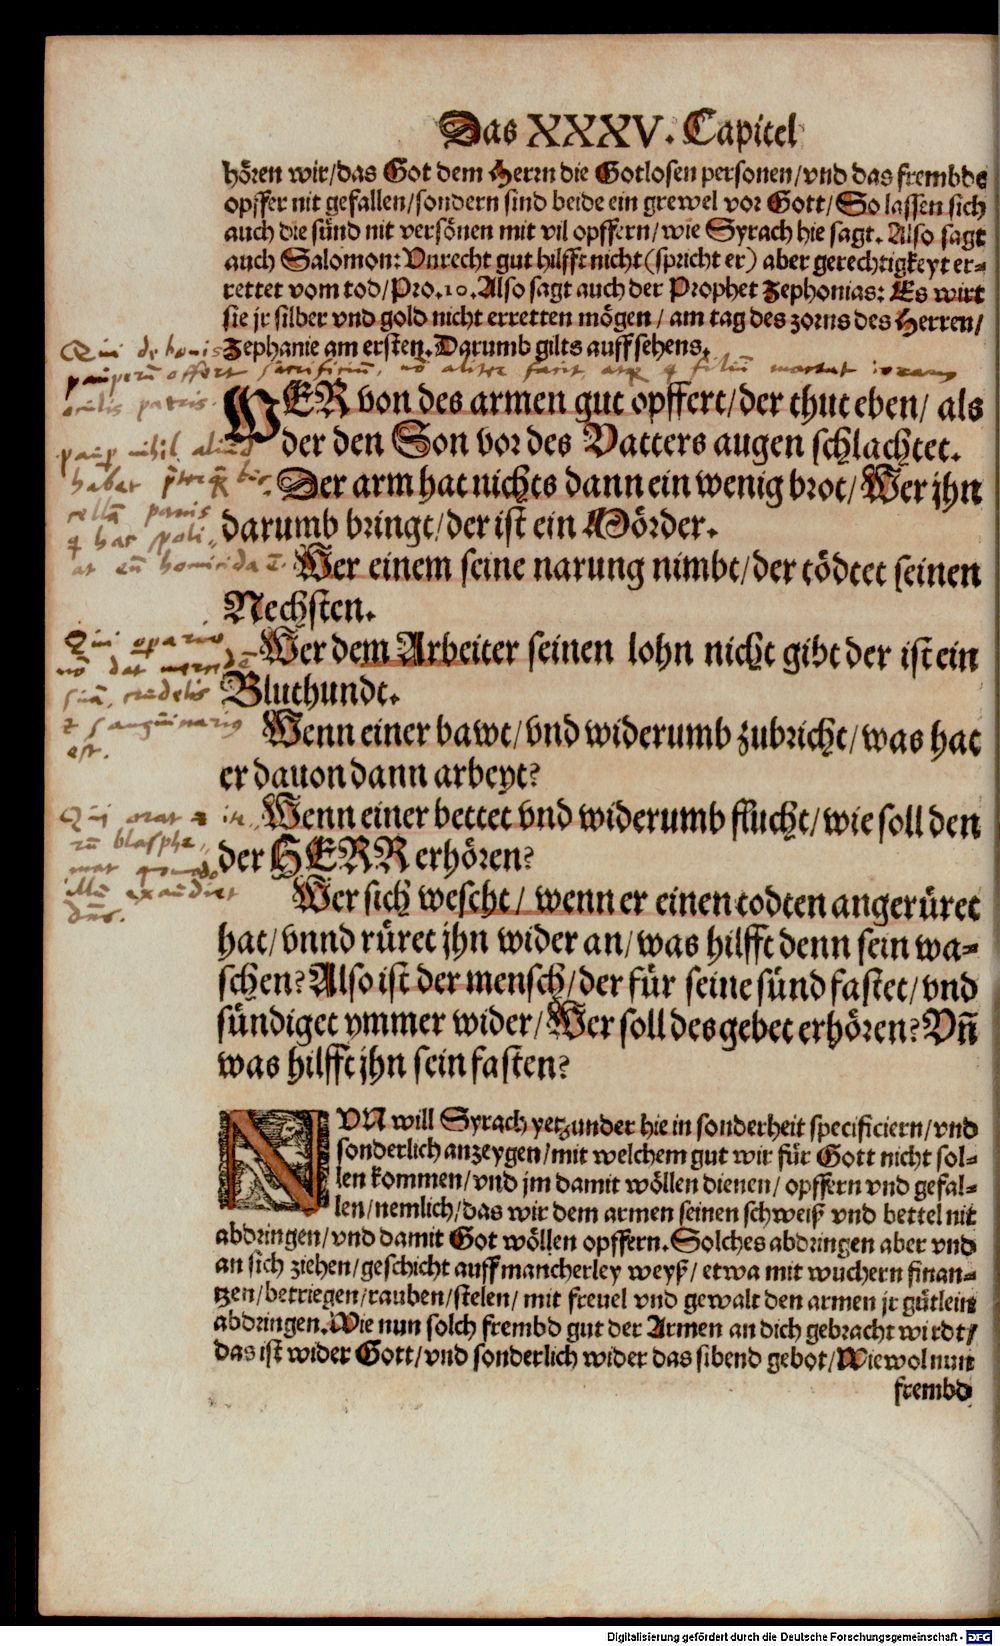 Das XXXV. Capitel
hören wir/das Got dem Herrn die Gotlosen personen/vnd das frembde
opffer nit gefallen/sondern sind beide ein grewel vor Gott/So lassen sich
auch die sünd nit versönen mit vil opffern/wie Syrach hie sagt. Also sagt
auch Salomon: Vnrecht gut hilfft nicht (spricht er) aber gerechtigkeyt er-
rettet vom tod/Pro.10. Also sagt auch der Prophet Zephonias: Es wirt
sie jr silber vnd gold nicht erretten mögen/ am tag des zorns des Herren/
Zephanie am ersten. Darumb gilts auffsehens.
Qui de bonis
pauperū offert sacrificium, nō aliter facit, atq q filiū mactat coram
oculis patris.
WER von des armen gut opffert/der thut eben/ als
der den Son vor des Vatters augen schlachtet.
paup nihil aliud
habet
Der arm hat nichts dann ein wenig brot/Wer jhn
cellā panis
darumb bringt/der ist ein Mörder.
q hac spoli„
at eū homicida ē.
Wer einem seine narung nimbt/der tödtet seinen
Nechsten.
Qui operario
nō dat mercedē
suā, crudelis
& sanguinarius
est.
Wer dem Arbeiter seinen lohn nicht gibt der ist ein
Bluthundt.
Wenn einer bawt/vnd widerumb zubricht/was hat
er dauon dann arbeyt?
Qui orat & ite„
rū blasphe„
mat quomodo
illū exaudiet
dñs.
Wenn einer bettet vnd widerumb flucht/wie soll den
der HERR erhören?
Wer sich wescht/ wenn er einen todten angerüret
hat/vnnd rüret jhn wider an/was hilfft denn sein wa-
schen? Also ist der mensch/der für seine sünd fastet/vnd
sündiget ymmer wider/Wer soll des gebet erhören? Vñ
was hilfft jhn sein fasten?
NVN will Syrach yetzunder hie in sonderheit specificiern/vnd
sonderlich anzeygen/mit welchem gut wir für Gott nicht sol-
len kommen/vnd jm damit wöllen dienen/ opffern vnd gefal-
len/nemlich/das wir dem armen seinen schweiß vnd bettel nit
abdringen/vnd damit Got wöllen opffern. Solches abdringen aber vnd
an sich ziehen/geschicht auff mancherley weyß/ etwa mit wuchern finan-
tzen/betriegen/rauben/stelen/ mit freuel vnd gewalt den armen jr gütlein
abdringen. Wie nun solch frembd gut der Armen an dich gebracht wirdt/
das ist wider Gott/vnd sonderlich wider das sibend gebot/Wiewol nun
frembd
Digitalisierung gefördert durch die Deutsche Forschungsgemeinschaft - DFG